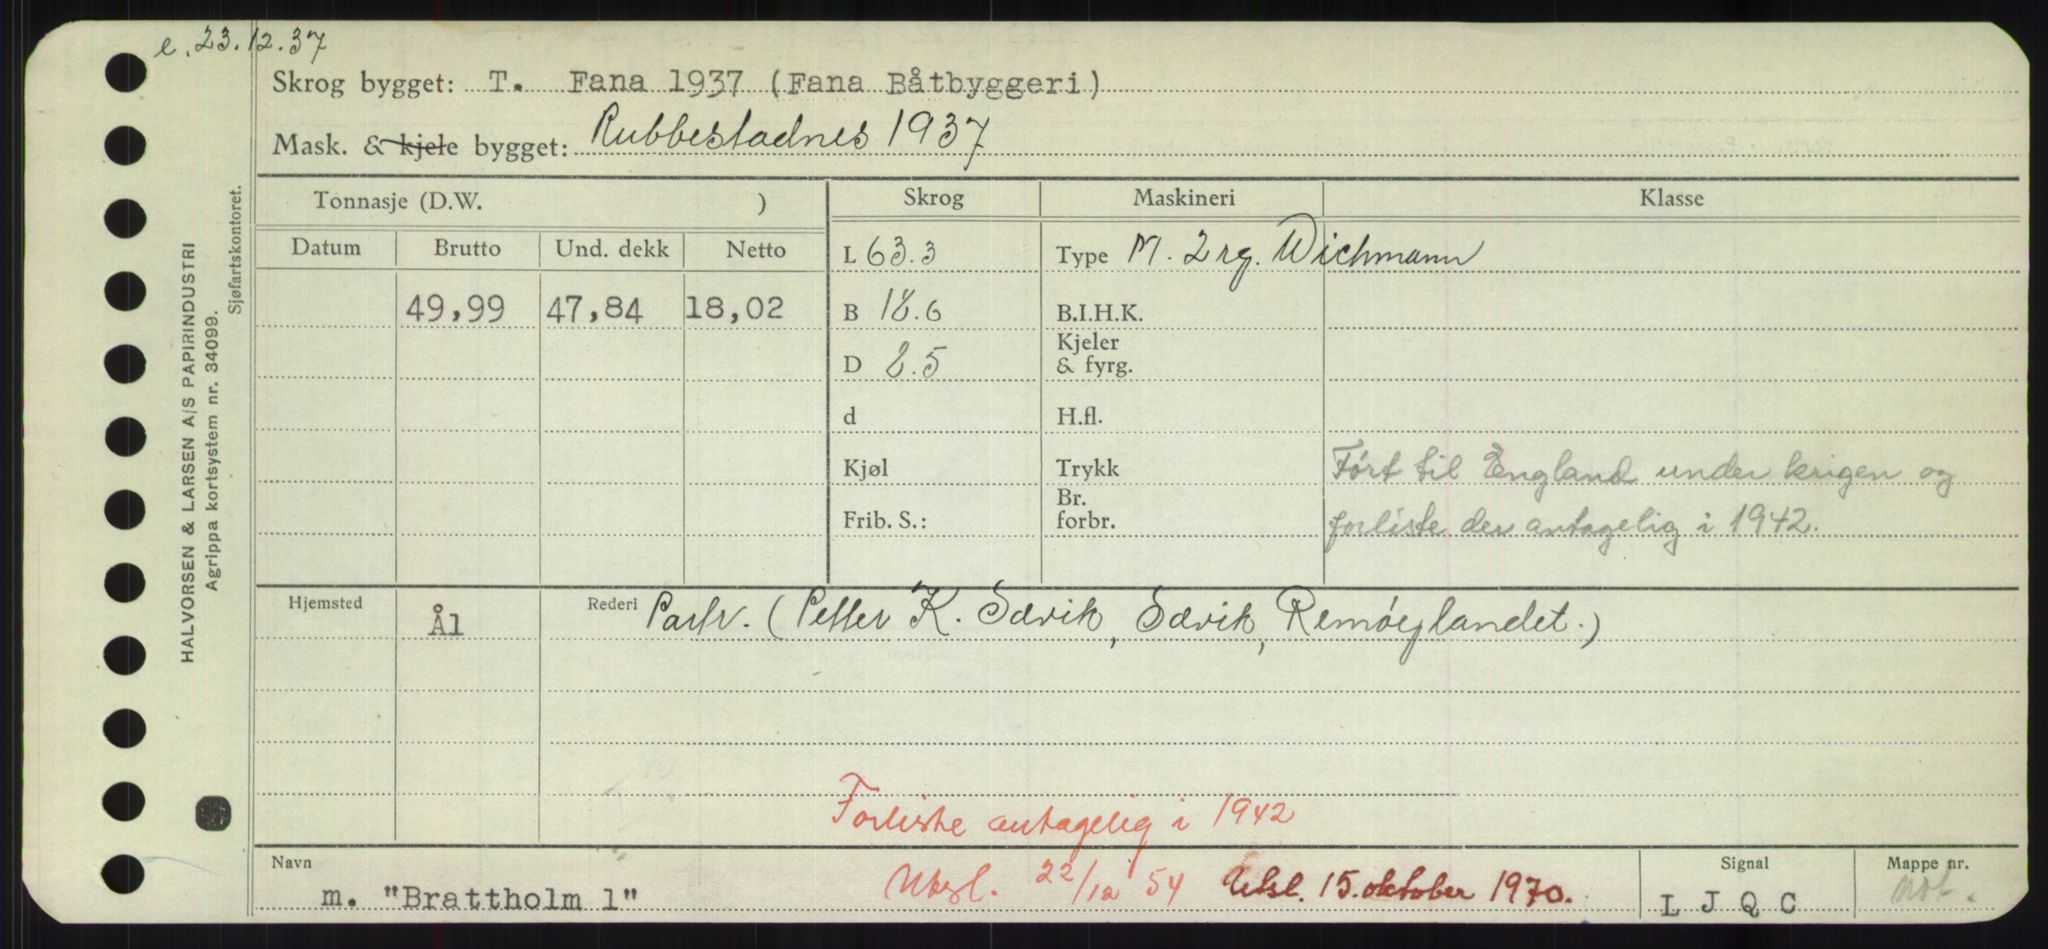 e. 23.12.37
Skrog bygget: T. Fana 1937 (Fana Båtbyggeri)
Mask. & kjele bygget: Rubbestadnes 1937
Tonnasje (D.W. )
Skrog
Maskineri
Klasse
Datum
Brutto
Und. dekk
Netto
L 63.3
Type M. 2 rg. Wichmann
49,99
47,84
18,02
B 18.6
B.I.H.K.
D 8.5
Kjeler
& fyrg.
d
H.fl.
Kjøl
Trykk
Ført til England under krigen og
Frib. S.:
Br.
forbr.
forliste der antagelig i 1942.
Hjemsted
Ål
Rederi Partr. (Petter K. Sævik, Sævik, Remøylandet.)
Forliste antagelig i 1942
Navn
m. "Brattholm 1"
Utsl. 22/12 54 Utsl. 15. oktober 1970.
Signal
L J Q C
Mappe nr.
HALVORSEN & LARSEN A/S PAPIRINDUSTRI
Agrippa kortsystem nr. 34099.
Sjøfartskontoret.